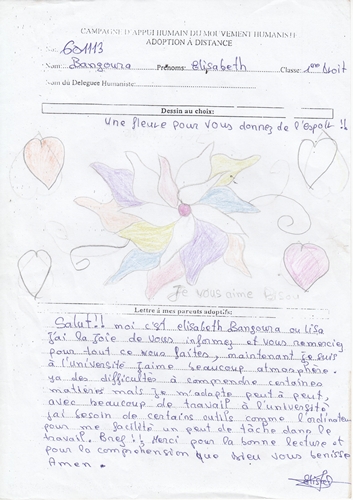 CAMPAGNE D'APPUI HUMAIN DU MOUVEMENT HUMANISTE
ADOPTION À DISTANCE
No: 601113
Nom: Bangoura Prénoms: elisabeth Classe: 1ere Droit
Nom du Delegues Humaniste:
Dessin au choix:
Une fleure pour vous donnez de l'espoir !!
Je vous aime Bisou
Lettre à mes parents adoptifs:
Salut!! moi c'est elisabeth Bangoura ou lisa
j'ai la joie de vous informez et vous remerciez
pour tout ce vous faites, maintenant je suis
à l'université j'aime beaucoup atmosphère.
ya des difficultés à comprendre certaines
matières mais je m'adapte peut à peut,
avec beaucoup de travail à l'université
j'ai besoin de certains outils comme l'ordinateur
pour me facilité un peut de tâche dans le
travail. Bref!! Merci pour la bonne lecture et
pour la compréhension que dieu vous benisse
Amen.